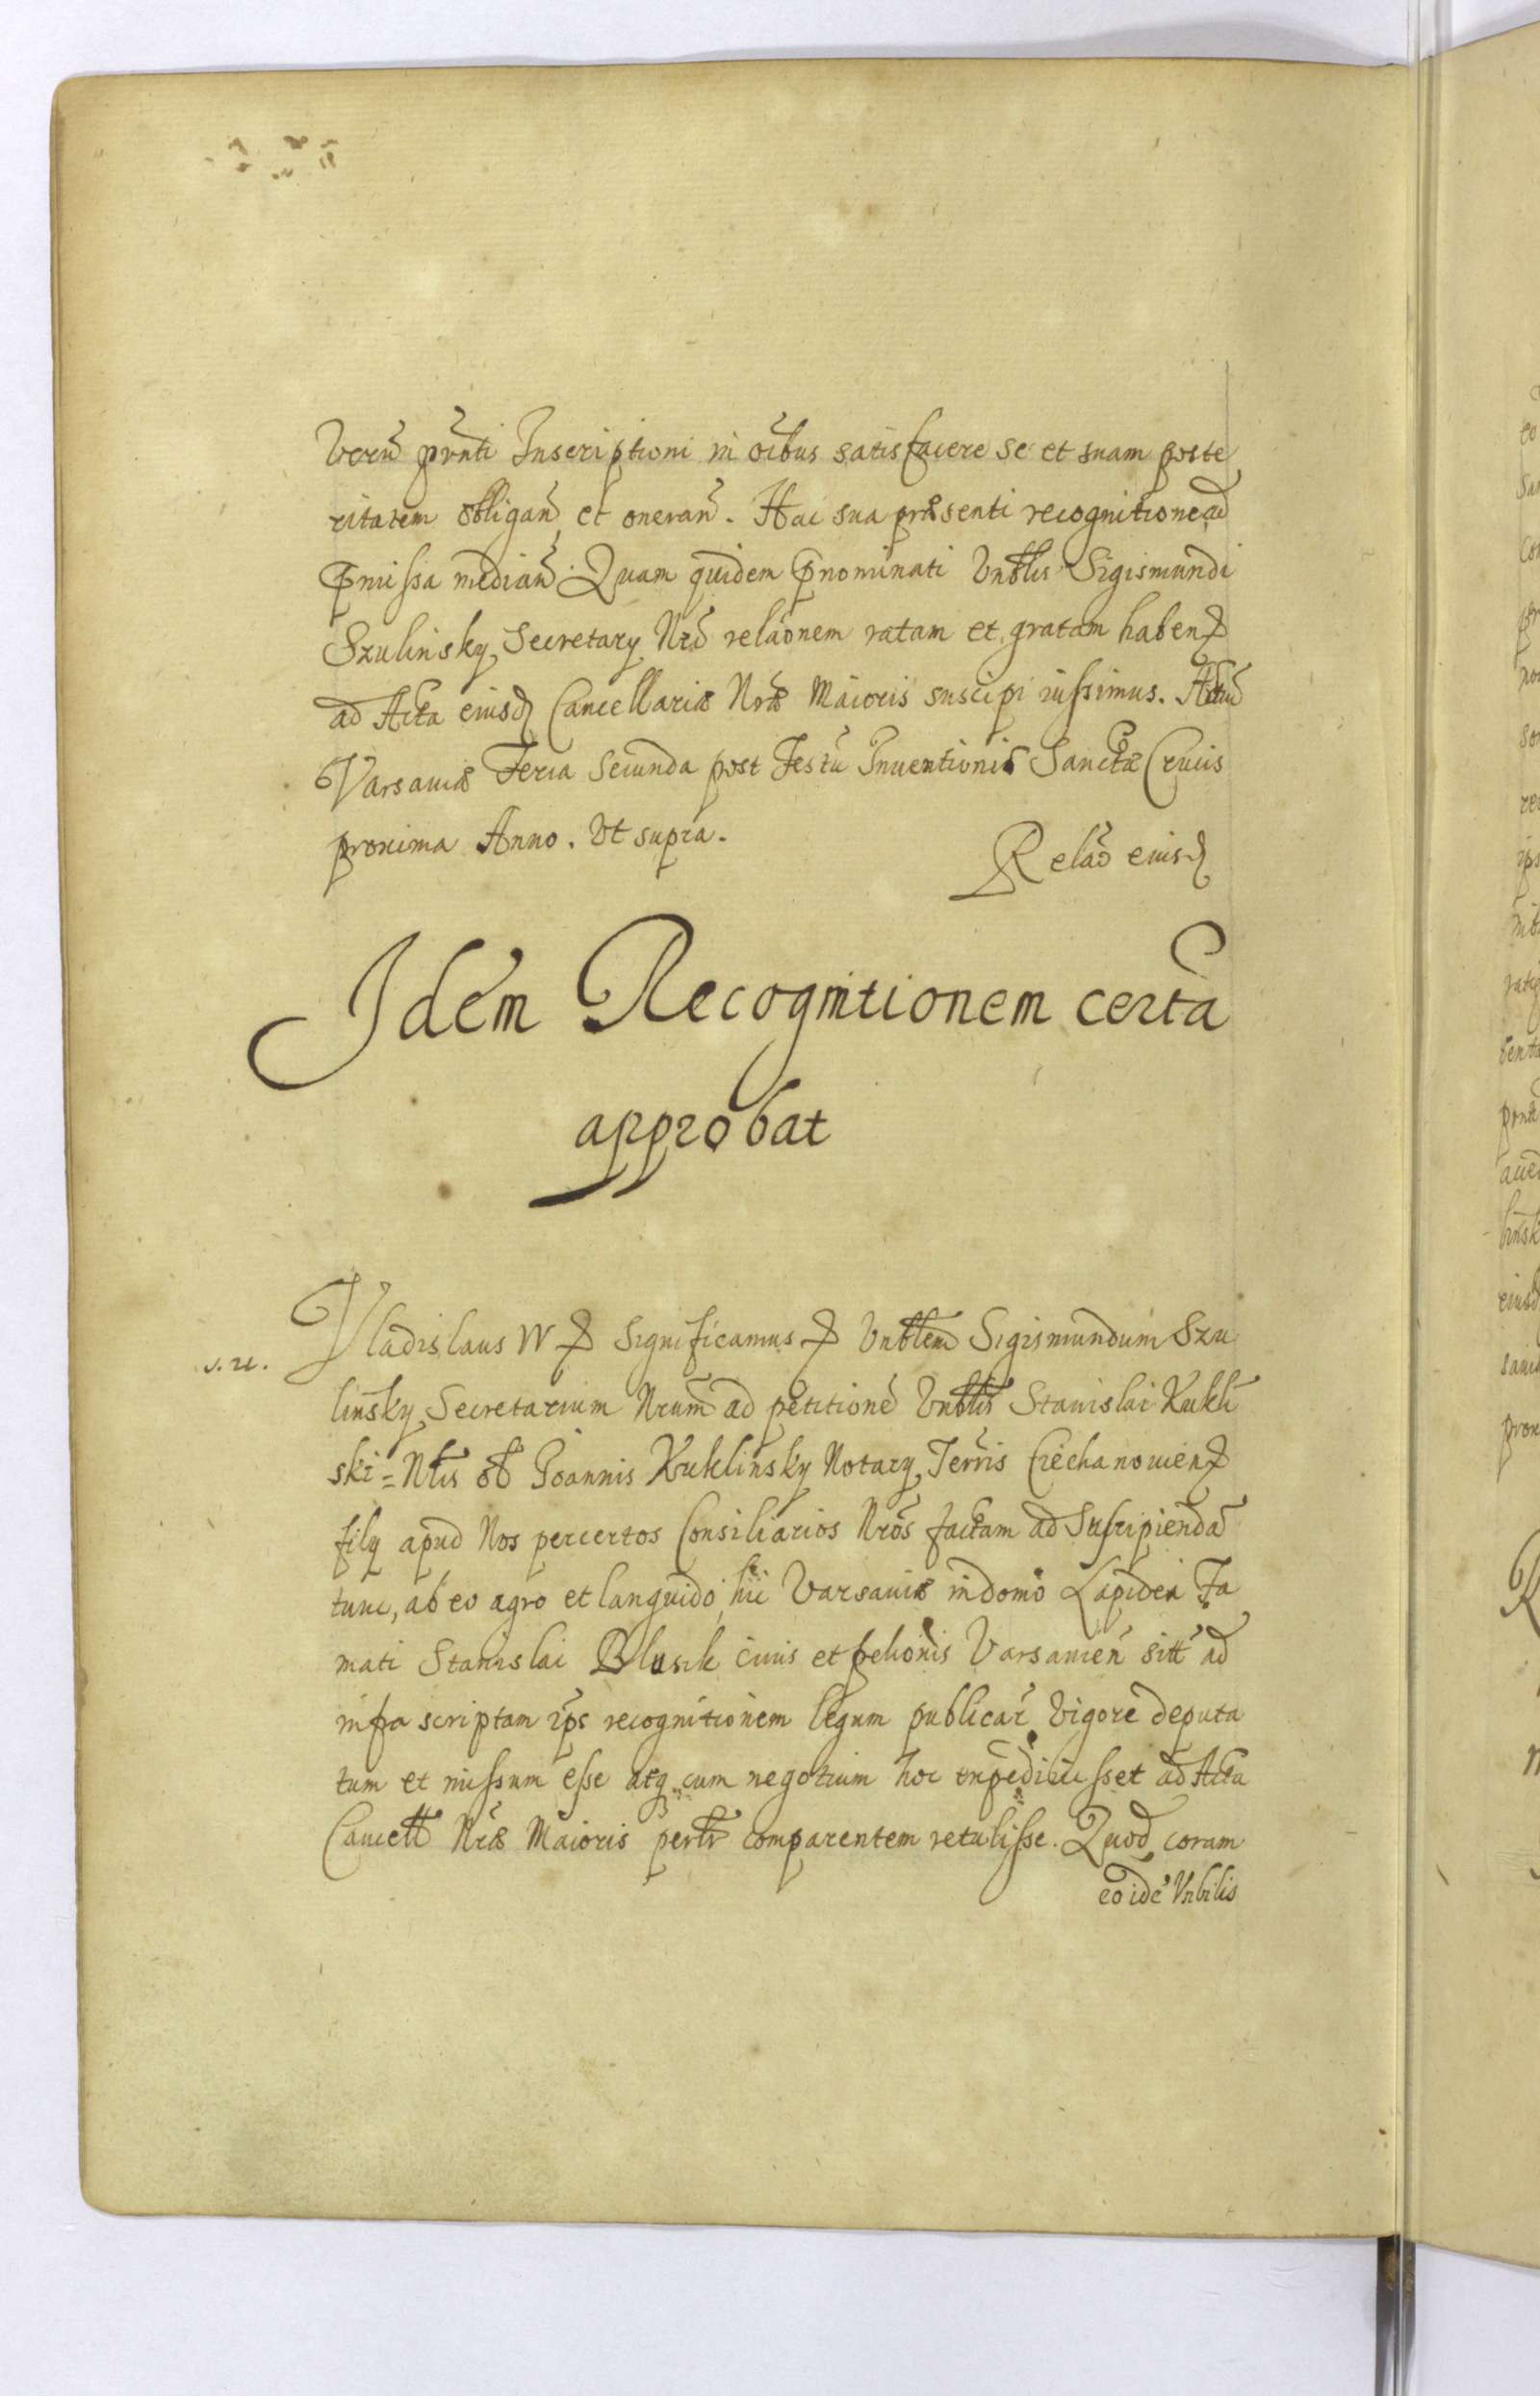 Verũ pñnti Inscriptioni in oĩbus satisfacere se et suam poste
ritatem obligañ et onerañ. Hac sua præsenti recognitione ad
pmissa mediañ. Quam quidem pnominati Vrbllis Sigismundi
Szulinsky Secretary Nri relãonem ratam et gratam haben
ad Acta eiusd Cancellariæ Nræ Maioris suscipi iussimus. Actũ
Varsaviæ Feria Secunda post Festũ Inventionis Sanctæ Crucis
proxima Anno. Vt supra.
Relão eiusd
Idem Recognitionem certã
approbat
Vladislaus IV Significamus Vrblem Sigismundum Szu
linsky Secretarium Nrum ad petitionẽ Vrblis Stanislai Kukliñ
ski = Nlis olб Joannis Kuklinsky Notary Terris Ciechanovien
fily apud Nos percertos Consiliarios Nros factam ad Suscipiendã
tunc, ab eo ægro et languido, hic Varsaviæ in domo Lapidea Fa
mati Stanislai Blusik civis et pelionis Varsavieñ sitt ad
infra scriptam ips recognitionem legum publicar̃ vigore deputa
tum et missum esse atq cum negotium hoc expedivisset ad Acta
Cancell Nræ Maioris perlr comparentem retulisse. Quod coram
eo idẽ Vrbilis